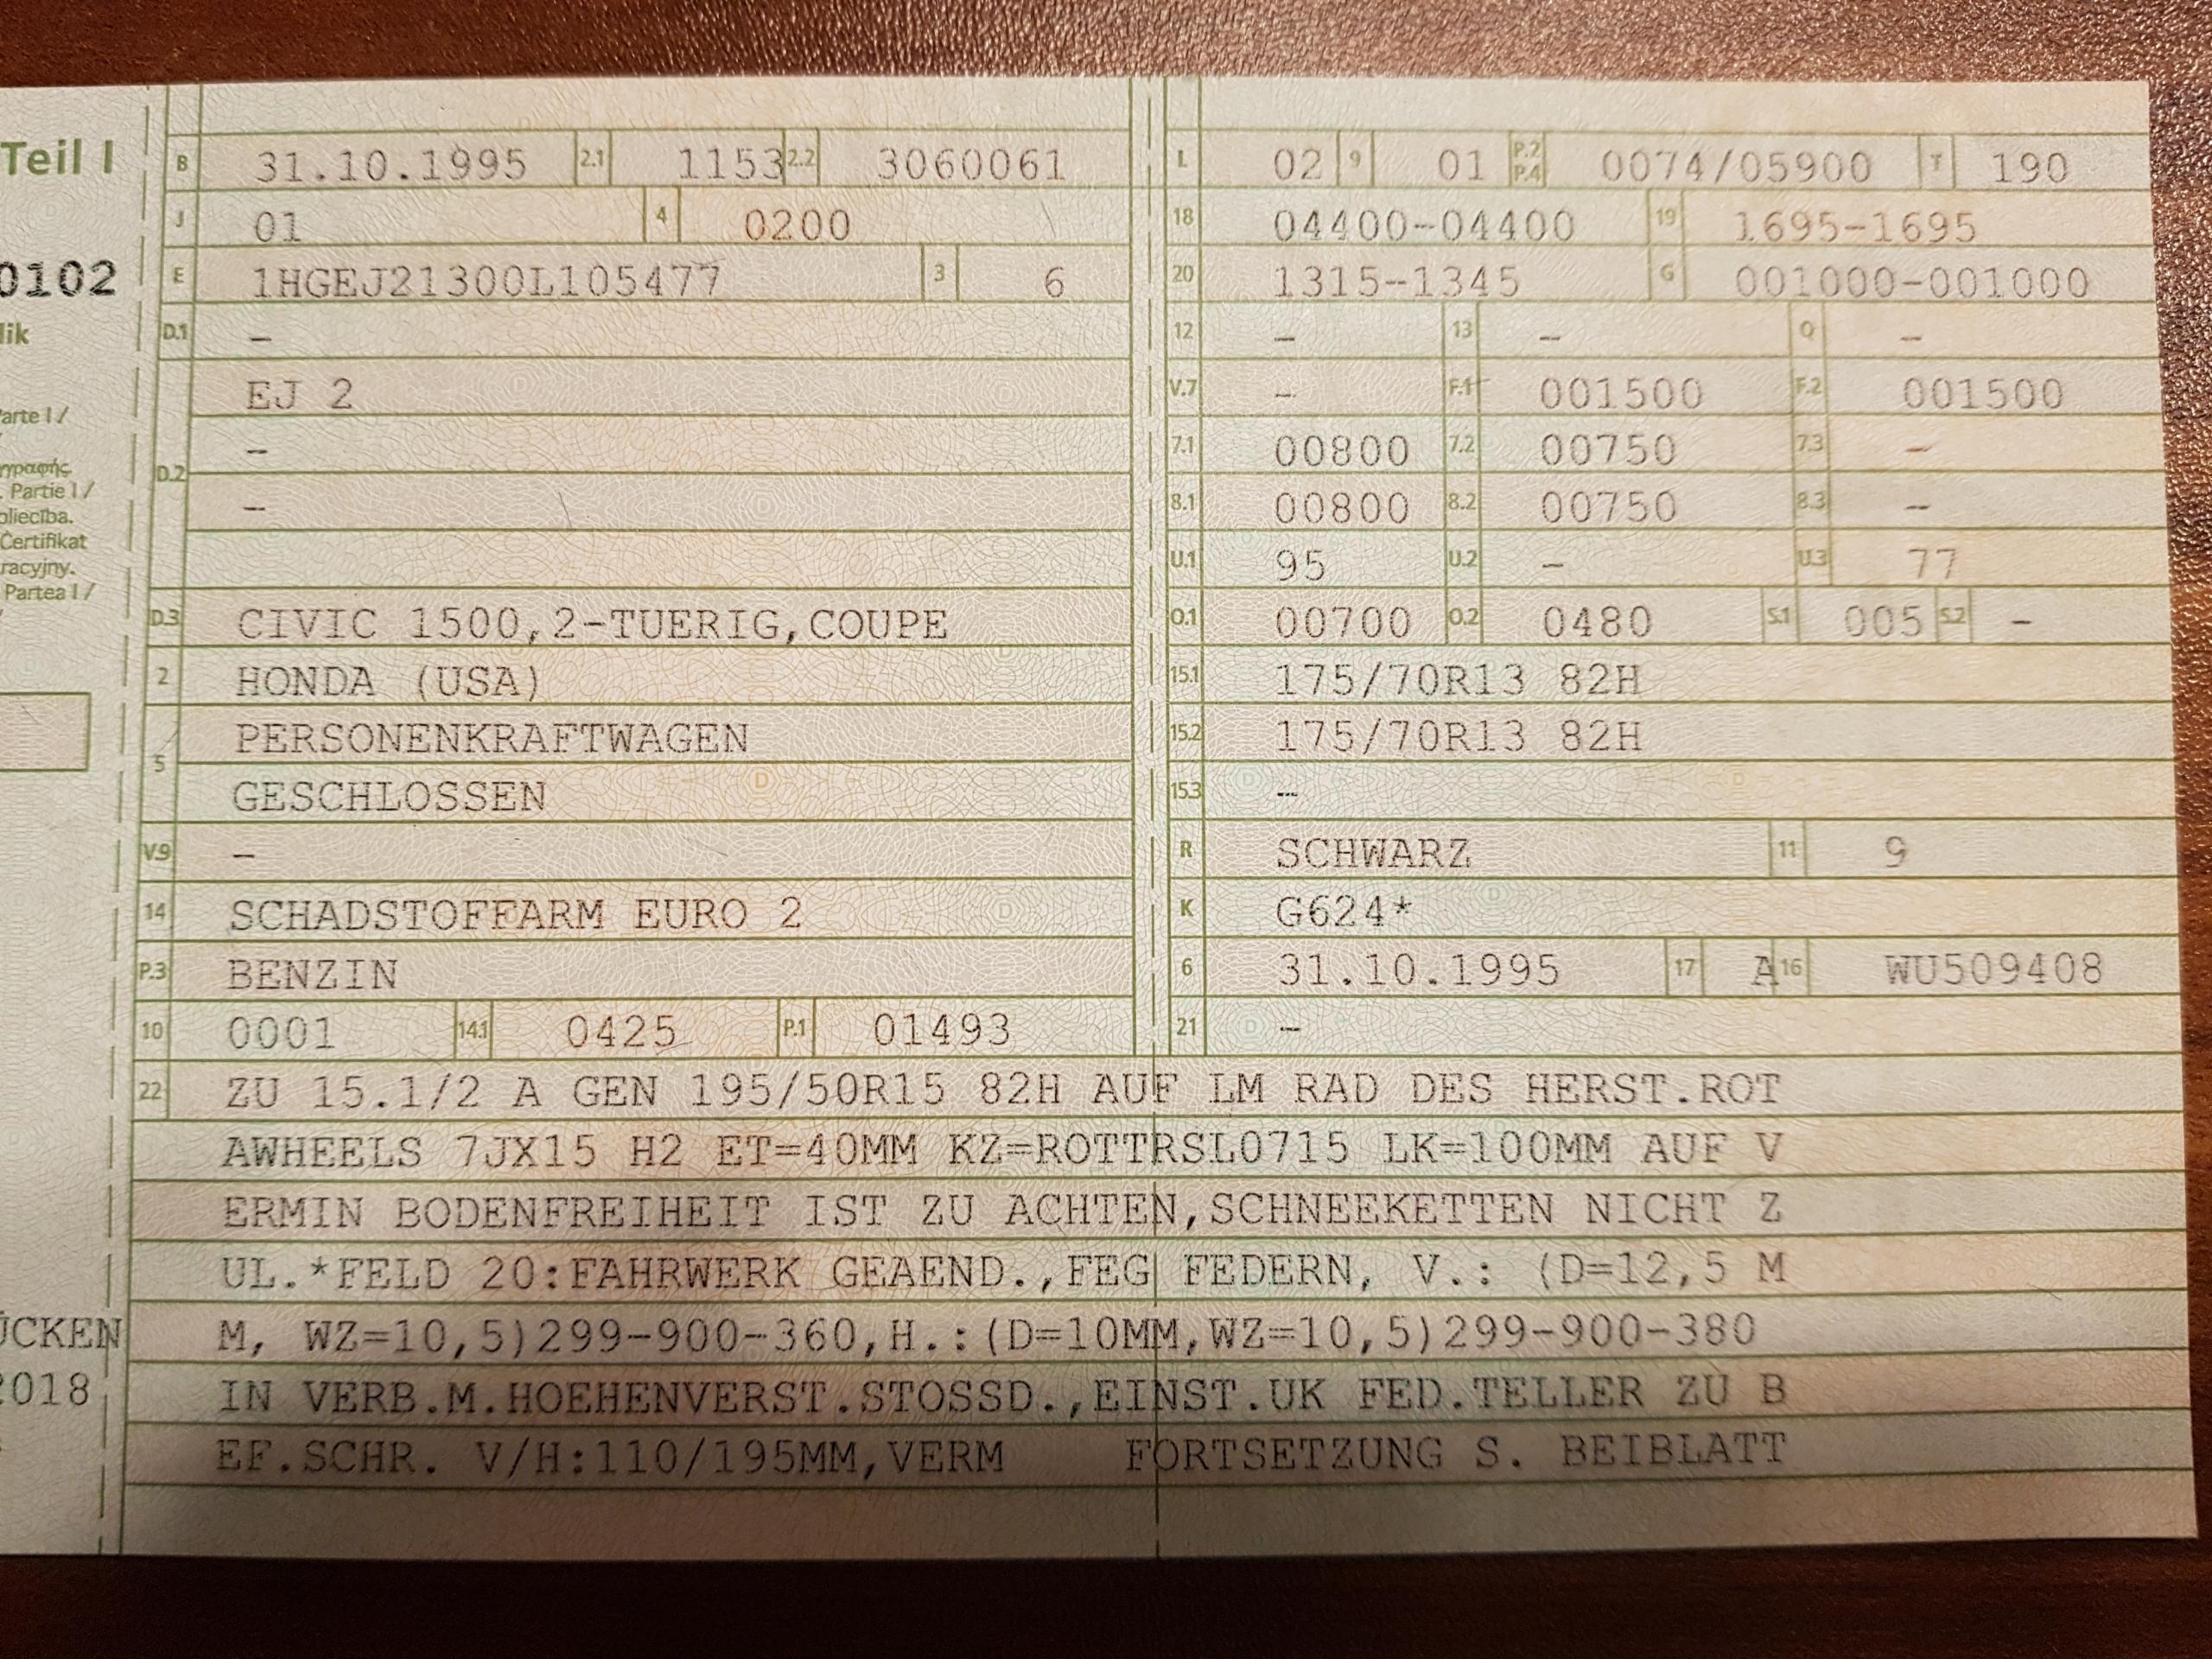 Teil I
0102
lik
Parte I /
γγραφής.
. Partie I /
pliecība.
Certifikat
racyjny.
Partea I /
ÜCKEN
2018
B 31.10.1995 2.1 1153 2.2 3060061
J 01 4 0200
E 1HGEJ21300L105477 3 6
D.1 -
D.2 EJ 2
-
-
D.3 CIVIC 1500,2-TUERIG,COUPE
2 HONDA (USA)
5 PERSONENKRAFTWAGEN
GESCHLOSSEN
V.9 -
14 SCHADSTOFFARM EURO 2
P.3 BENZIN
10 0001 14.1 0425 P.1 01493
L 02 9 01 P.2 P.4 0074/05900 T 190
18 04400-04400 19 1695-1695
20 1315-1345 G 001000-001000
12 - 13 - Q -
V.7 - F.1 001500 F.2 001500
7.1 00800 7.2 00750 7.3 -
8.1 00800 8.2 00750 8.3 -
U.1 95 U.2 - U.3 77
O.1 00700 O.2 0480 S.1 005 S.2 -
15.1 175/70R13 82H
15.2 175/70R13 82H
15.3 -
R SCHWARZ 11 9
K G624*
6 31.10.1995 17 A 16 WU509408
21 -
22 ZU 15.1/2 A GEN 195/50R15 82H AUF LM RAD DES HERST.ROT
AWHEELS 7JX15 H2 ET=40MM KZ=ROTTRSL0715 LK=100MM AUF V
ERMIN BODENFREIHEIT IST ZU ACHTEN,SCHNEEKETTEN NICHT Z
UL.*FELD 20:FAHRWERK GEAEND.,FEG FEDERN, V.: (D=12,5 M
M, WZ=10,5)299-900-360,H.:(D=10MM,WZ=10,5)299-900-380
IN VERB.M.HOEHENVERST.STOSSD.,EINST.UK FED.TELLER ZU B
EF.SCHR. V/H:110/195MM,VERM FORTSETZUNG S. BEIBLATT